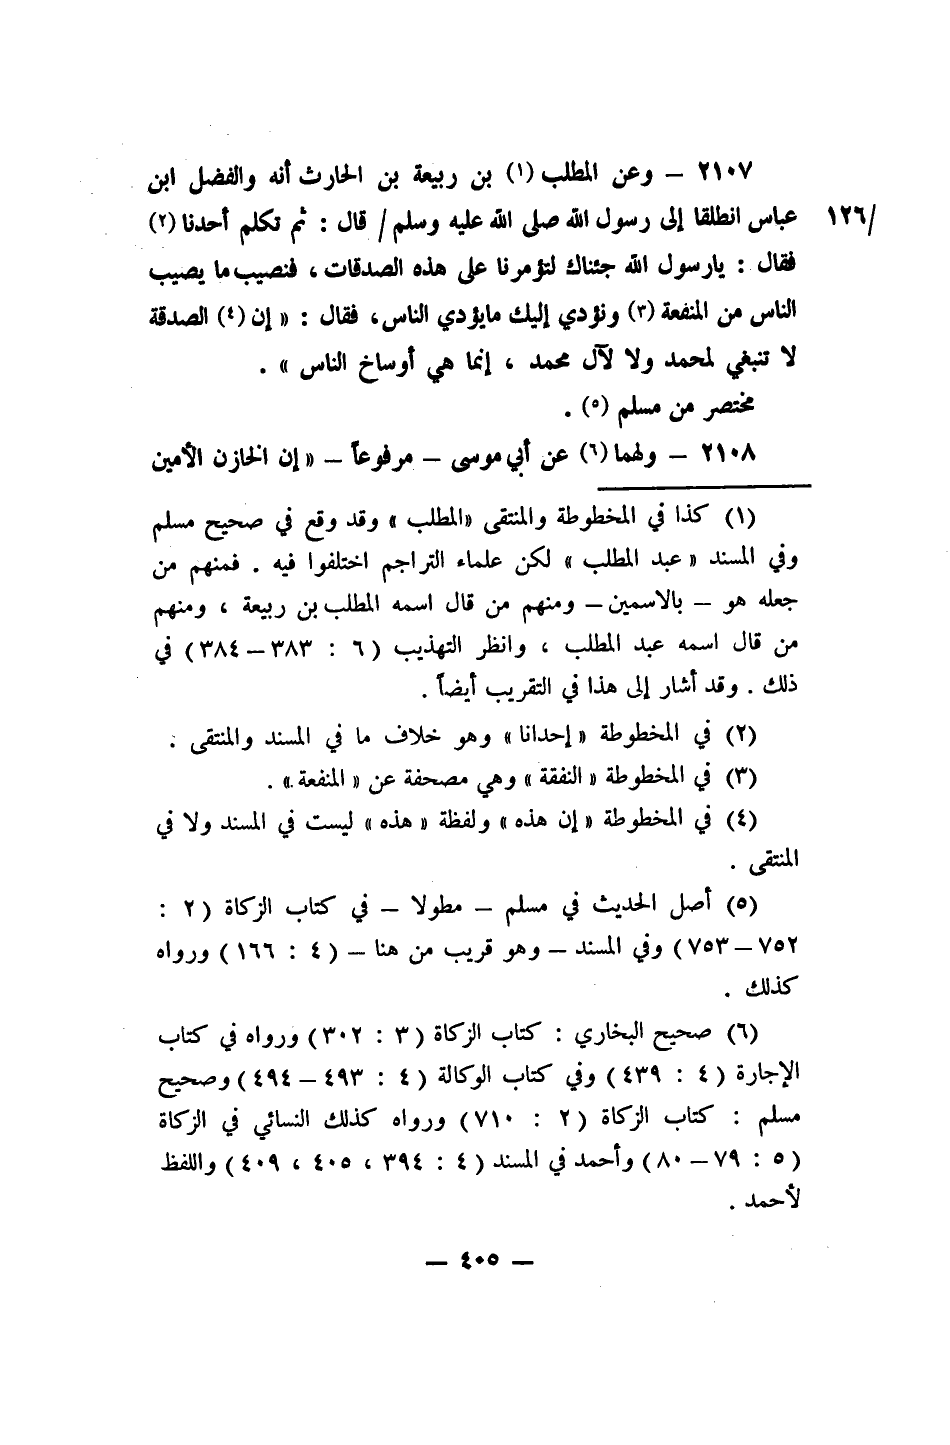 ٢١٠٧ – وعن المطلب (١) بن ربيعة بن الحارث أنه والفضل ابن
عباس انطلقا إلى رسول الله صلى الله عليه وسلم / قال : ثم تكلم أحدنا (٢)
/١٢٦
فقال : يارسول الله جئناك لتؤمرنا على هذه الصدقات ، فنصيب ما يصيب
الناس من المنفعة (٣) ونؤدي إليك مايؤدي الناس، فقال : « إن (٤) الصدقة
لا تنبغي لمحمد ولا لآل محمد ، إنما هي أوساخ الناس » .
مختصر من مسلم (٥) .
٢١٠٨ – ولهما (٦) عن أبي موسى – مرفوعاً – « إن الخازن الأمين
(١) كذا في المخطوطة والمنتقى «المطلب» وقد وقع في صحيح مسلم
وفي المسند « عبد المطلب » لكن علماء التراجم اختلفوا فيه . فمنهم من
جعله هو – بالاسمين – ومنهم من قال اسمه المطلب بن ربيعة ، ومنهم
من قال اسمه عبد المطلب ، وانظر التهذيب ( ٦ : ٣٨٣ – ٣٨٤ ) في
ذلك . وقد أشار إلى هذا في التقريب أيضاً .
(٢) في المخطوطة « إحدانا » وهو خلاف ما في المسند والمنتقى .
(٣) في المخطوطة « النفقة » وهي مصحفة عن « المنفعة » .
(٤) في المخطوطة « إن هذه » ولفظة « هذه » ليست في المسند ولا في
المنتقى .
(٥) أصل الحديث في مسلم – مطولا – في كتاب الزكاة ( ٢ :
٧٥٢ – ٧٥٣ ) وفي المسند – وهو قريب من هنا – ( ٤ : ١٦٦ ) ورواه
كذلك .
(٦) صحيح البخاري : كتاب الزكاة ( ٣ : ٣٠٢ ) ورواه في كتاب
الإجارة ( ٤ : ٤٣٩ ) وفي كتاب الوكالة ( ٤ : ٤٩٣ – ٤٩٤ ) وصحيح
مسلم : كتاب الزكاة ( ٢ : ٧١٠ ) ورواه كذلك النسائي في الزكاة
( ٥ : ٧٩ – ٨٠ ) وأحمد في المسند ( ٤ : ٣٩٤ ، ٤٠٥ ، ٤٠٩ ) واللفظ
لأحمد .
– ٤٠٥ –